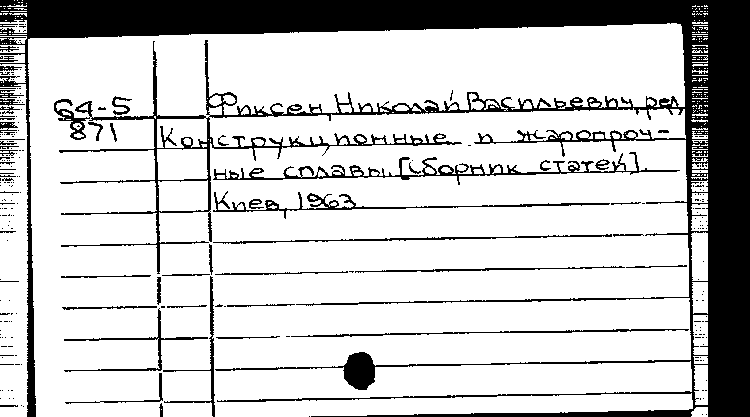 64-5 Фиксен, Николай Васильевич, ред.
871 Конструкционные и жаропроч-
ные сплавы. [Сборник статей].
Киев, 1963.